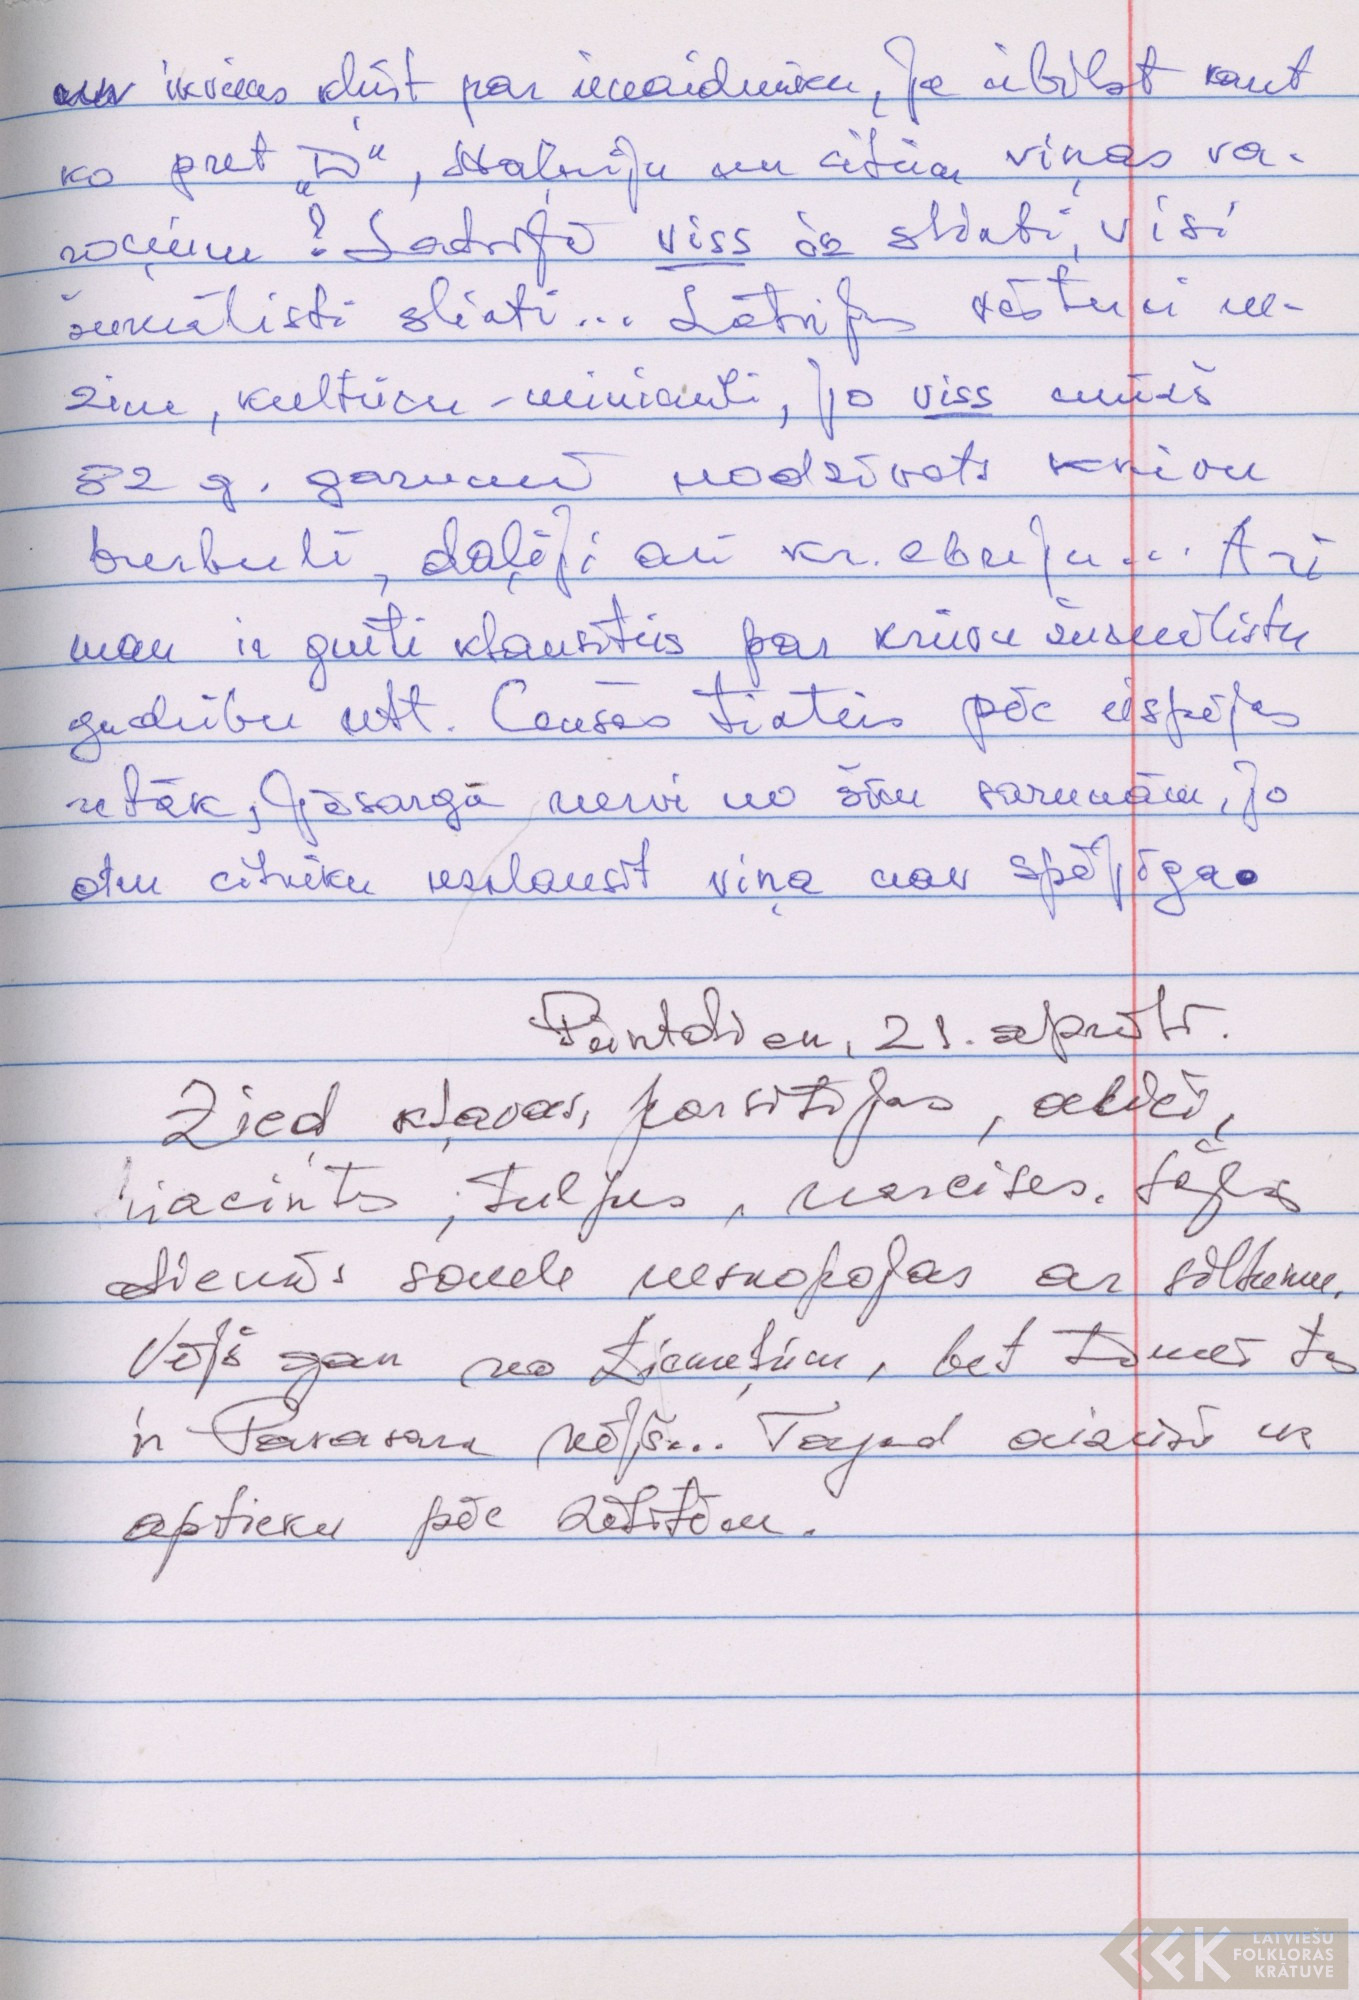 un ikviens kļūst par ienaidnieku, ja iebilst kaut
ko pret „D”, Staļinu un citiem viņas va-
roņiem! Latvijā viss ir slikti, visi
žurnālisti slikti... Latvijas vēsturi ne-
zinu, kultūru - minimāli, jo viss mūžs
82 g. garumā nodzīvots krievu
burbulī, daļēji arī kr. ebreju... Arī
man ir grūti klausīties par krievu žurnālistu
gudrību utt. Cenšos tikties pēc iespējas
retāk, jāsargā nervi no šīm sarunām, jo
otru cilvēku uzklausīt viņa nav spējīga.
Pirmdien, 21. aprīlī.
Zied kļavas, forsītijas,
hiacintes, tulpes, narcises. Šajās
dienās saule neskopojas ar siltumu.
Vējš gan no ziemeļiem, bet tomēr tas
ir Pavasara vējš... Tagad aiziešu uz
aptieku pēc zālītēm.
LATVIEŠU
FOLKLORAS
KRĀTUVE